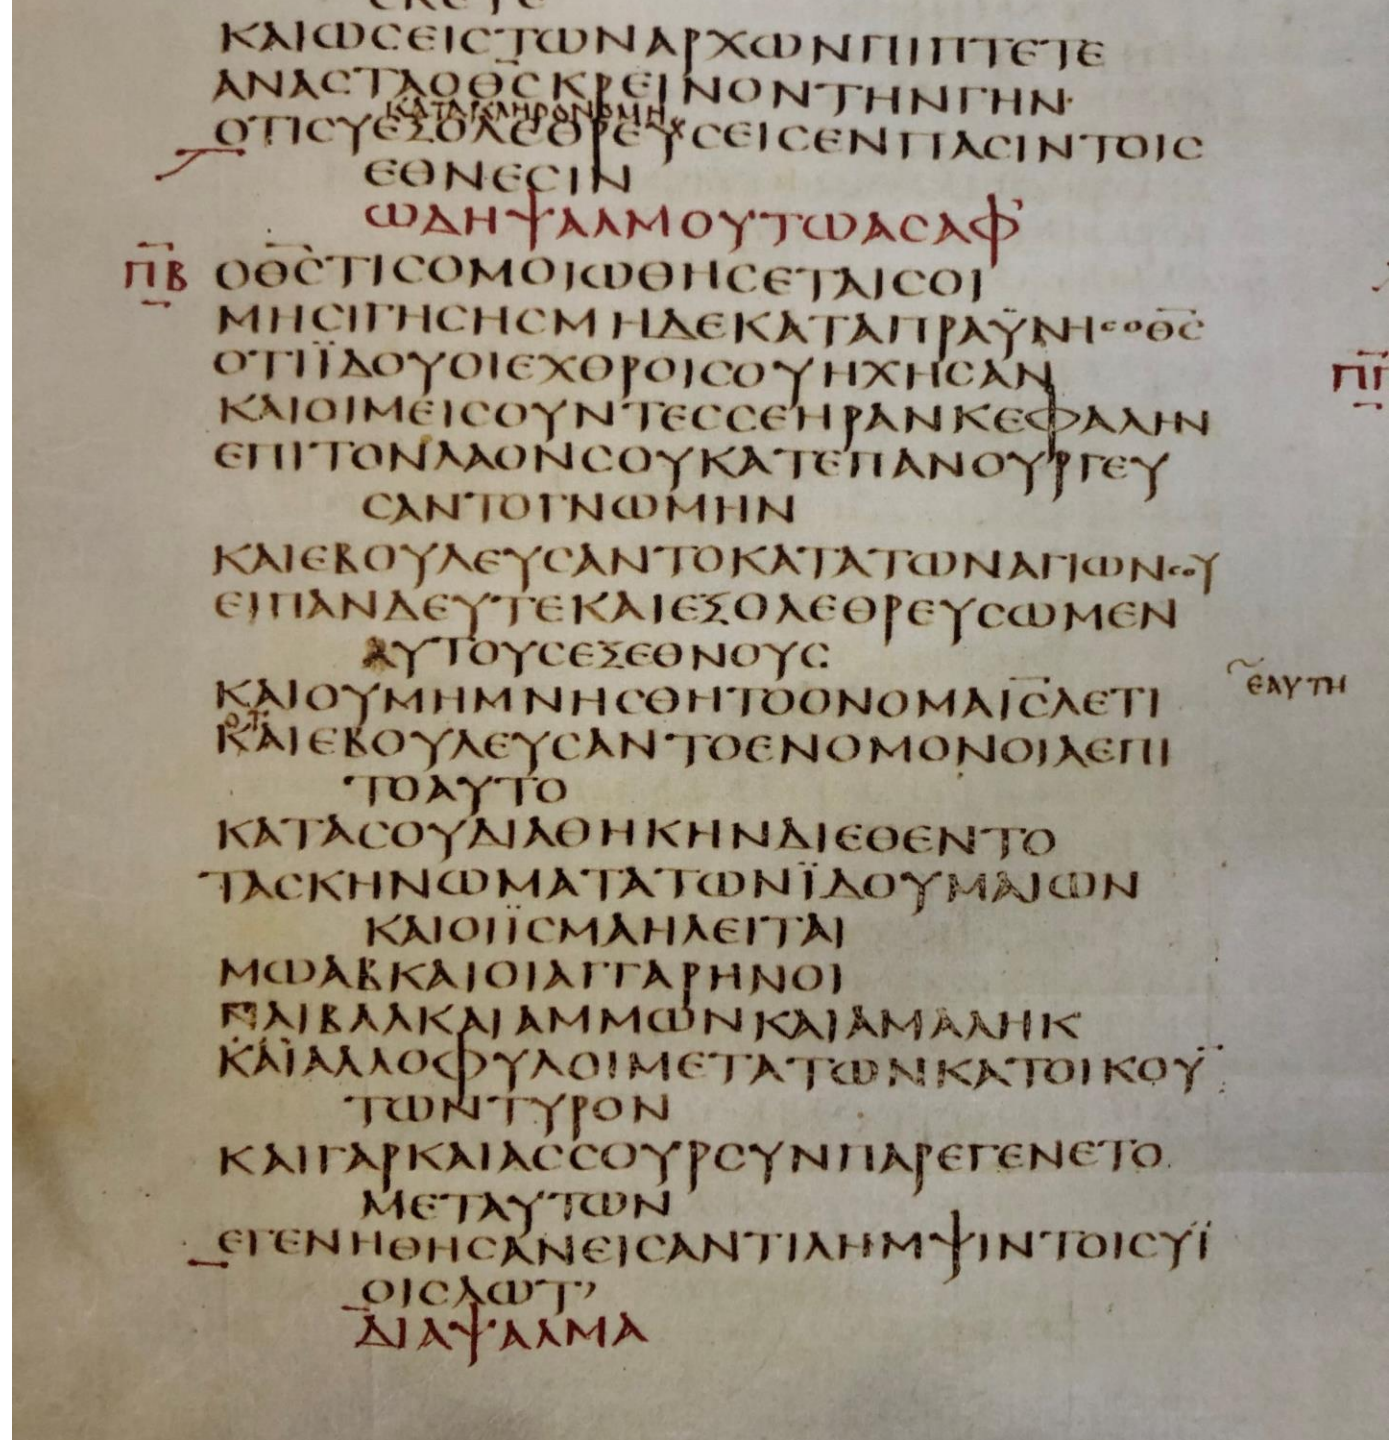 ΚΑΙΩϹΕΙϹΤΩΝΑΡΧΩΝΠΙΠΤΕΤΕ
ΑΝΑϹΤΑΟΘ̅Ϲ̅ΚΡΕΙΝΟΝΤΗΝΓΗΝ·
ΚΑΤΑΚΛΗΡΟΝΟΜΗ
ΟΤΙϹΥΕΞΟΛΕΘΡΕΥϹΕΙϹΕΝΠΑϹΙΝΤΟΙϹ
ΕΘΝΕϹΙΝ
ΩΔΗΨΑΛΜΟΥΤΩΑϹΑΦ’
Π̅Β̅ ΟΘ̅Ϲ̅ΤΙϹΟΜΟΙΩΘΗϹΕΤΑΙϹΟΙ
ΜΗϹΙΓΗϹΗϹΜΗΔΕΚΑΤΑΠΡΑΫΝΗϹΟΘ̅Ϲ̅
ΟΤΙΪΔΟΥΟΙΕΧΘΡΟΙϹΟΥΗΧΗϹΑΝ
ΚΑΙΟΙΜΕΙϹΟΥΝΤΕϹϹΕΗΡΑΝΚΕΦΑΛΗΝ
ΕΠΙΤΟΝΛΑΟΝϹΟΥΚΑΤΕΠΑΝΟΥΡΓΕΥ
ϹΑΝΤΟΓΝΩΜΗΝ
ΚΑΙΕΒΟΥΛΕΥϹΑΝΤΟΚΑΤΑΤΩΝΑΓΙΩΝϹΟΥ
ΕΙΠΑΝΔΕΥΤΕΚΑΙΕΞΟΛΕΘΡΕΥϹΩΜΕΝ
ΑΥΤΟΥϹΕΞΕΘΝΟΥϹ
ΚΑΙΟΥΜΗΜΝΗϹΘΗΤΟΟΝΟΜΑΙ̅Ϲ̅Λ̅ΕΤΙ
ΕΑΥΤΗ
ΟΤΙ
ΚΑΙΕΒΟΥΛΕΥϹΑΝΤΟΕΝΟΜΟΝΟΙΑΕΠΙ
ΤΟΑΥΤΟ
ΚΑΤΑϹΟΥΔΙΑΘΗΚΗΝΔΙΕΘΕΝΤΟ
ΤΑϹΚΗΝΩΜΑΤΑΤΩΝΪΔΟΥΜΑΙΩΝ
ΚΑΙΟΙΪϹΜΑΗΛΕΙΤΑΙ
ΜΩΑΒΚΑΙΟΙΑΓΓΑΡΗΝΟΙ
ΝΑΙΒΑΛΚΑΙΑΜΜΩΝΚΑΙΑΜΑΛΗΚ
ΚΑΙΑΛΛΟΦΥΛΟΙΜΕΤΑΤΩΝΚΑΤΟΙΚΟΥ
ΤΩΝΤΥΡΟΝ
ΚΑΙΓΑΡΚΑΙΑϹϹΟΥΡϹΥΝΠΑΡΕΓΕΝΕΤΟ
ΜΕΤΑΥΤΩΝ
ΕΓΕΝΗΘΗϹΑΝΕΙϹΑΝΤΙΛΗΜΨΙΝΤΟΙϹΥΪ
ΟΙϹΛΩΤ’
ΔΙΑΨΑΛΜΑ